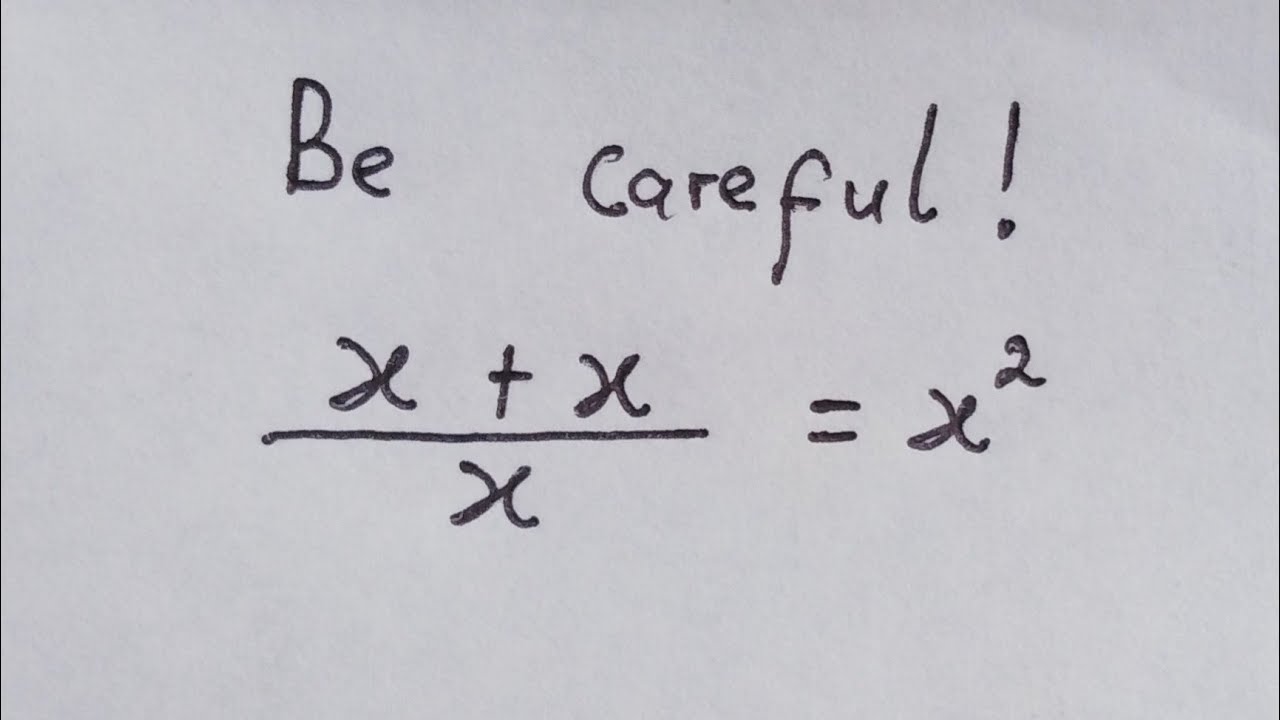 Be careful!
x + x
x
= x²